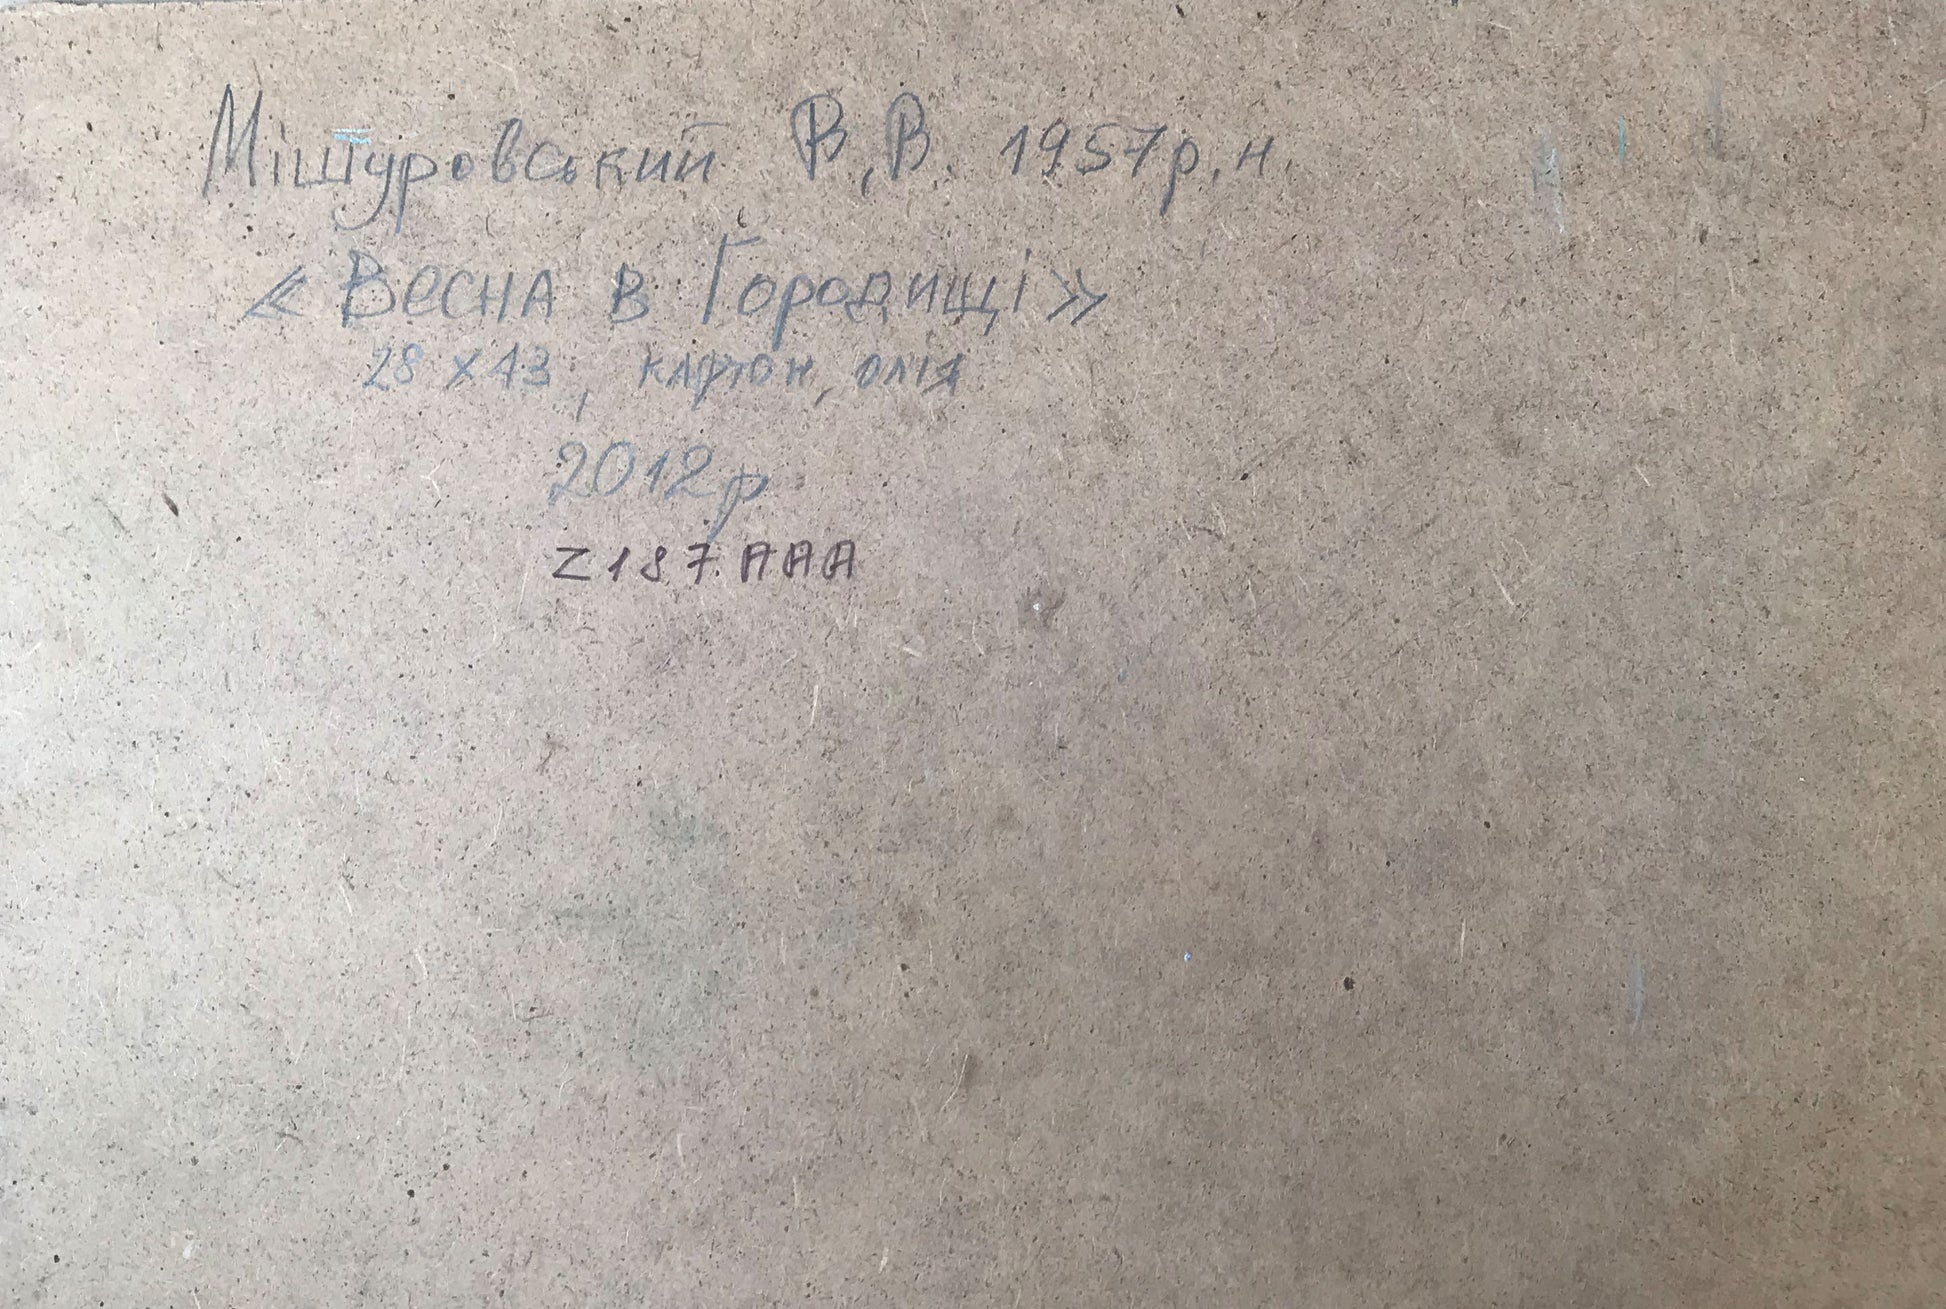 Мішуровський В.В. 1957р.н.
«Весна в Городищі»
28 х 43, картон, олія
2012р
Z187AAA